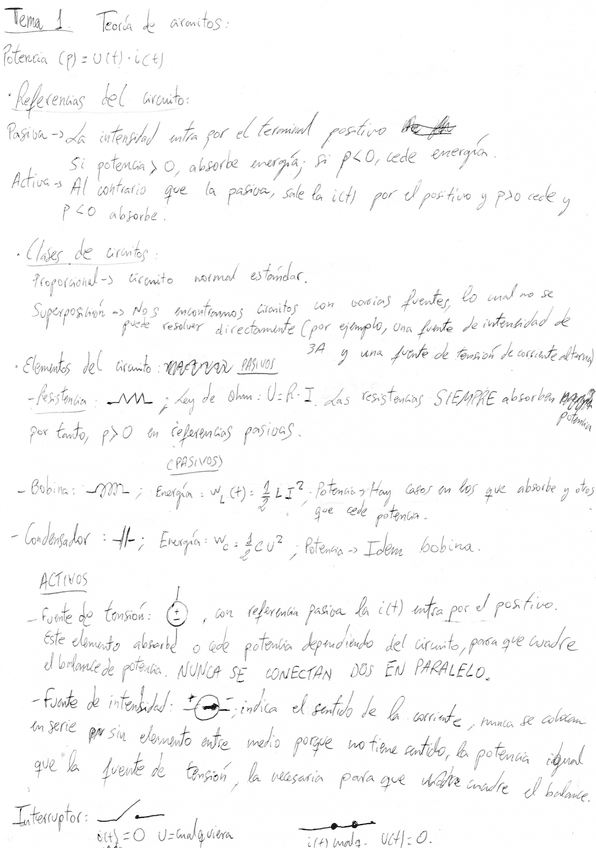 Tema 1. Teoría de circuitos:
Potencia (p) = U(t) · i(t)
· Referencias del circuito:
Pasiva -> La intensidad entra por el terminal positivo
Si potencia > 0, absorbe energía; si p<0, cede energía.
Activa -> Al contrario que la pasiva, sale la i(t) por el positivo y p>0 cede y
p<0 absorbe.
· Clases de circuitos:
Proporcional -> circuito normal estándar.
Superposición -> Nos encontramos circuitos con varias fuentes, lo cual no se
puede resolver directamente (por ejemplo, una fuente de intensidad de
3A y una fuente de tensión de corriente alterna)
· Elementos del circuito: PASIVOS
- Resistencia: ; Ley de Ohm: U=R·I. Las resistencias SIEMPRE absorben
potencia
por tanto, p>0 en referencias pasivas.
(PASIVOS)
- Bobina: ; Energía: W_L(t) = 1/2 L I². Potencia -> Hay casos en los que absorbe y otros
que cede potencia.
- Condensador: ; Energía: W_C = 1/2 C U²; Potencia -> Idem bobina.
ACTIVOS
- Fuente de tensión: , con referencia pasiva la i(t) entra por el positivo.
Este elemento absorbe o cede potencia dependiendo del circuito, para que cuadre
el balance de potencia. NUNCA SE CONECTAN DOS EN PARALELO.
- Fuente de intensidad: + - ; indica el sentido de la corriente, nunca se colocan
en serie sin elemento entre medio porque no tiene sentido, la potencia igual
que la fuente de tensión, la necesaria para que cuadre el balance.
Interruptor:
i(t)=0 U=cualquiera i(t) cualq. U(t)=0.